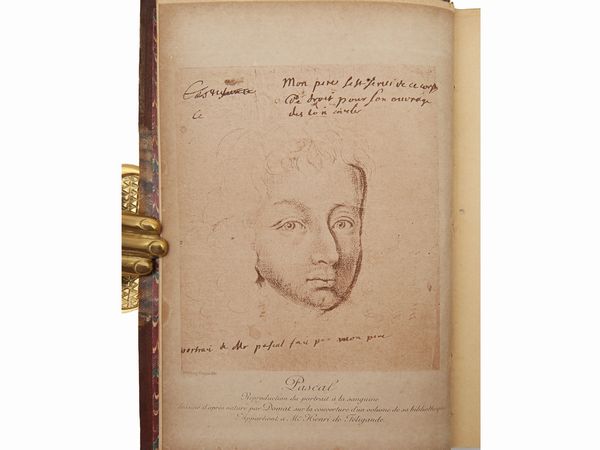 Mon pere s'est servi de ce corps
De droit pour son ouvrage
des loix civiles
Ce
portrait de Mr pascal fait par mon pere
Pascal
Reproduction du portrait à la sanguine
dessiné d'après nature par Domat sur la couverture d'un volume de sa bibliothèque
Appartient à Mr Henri de Féligonde